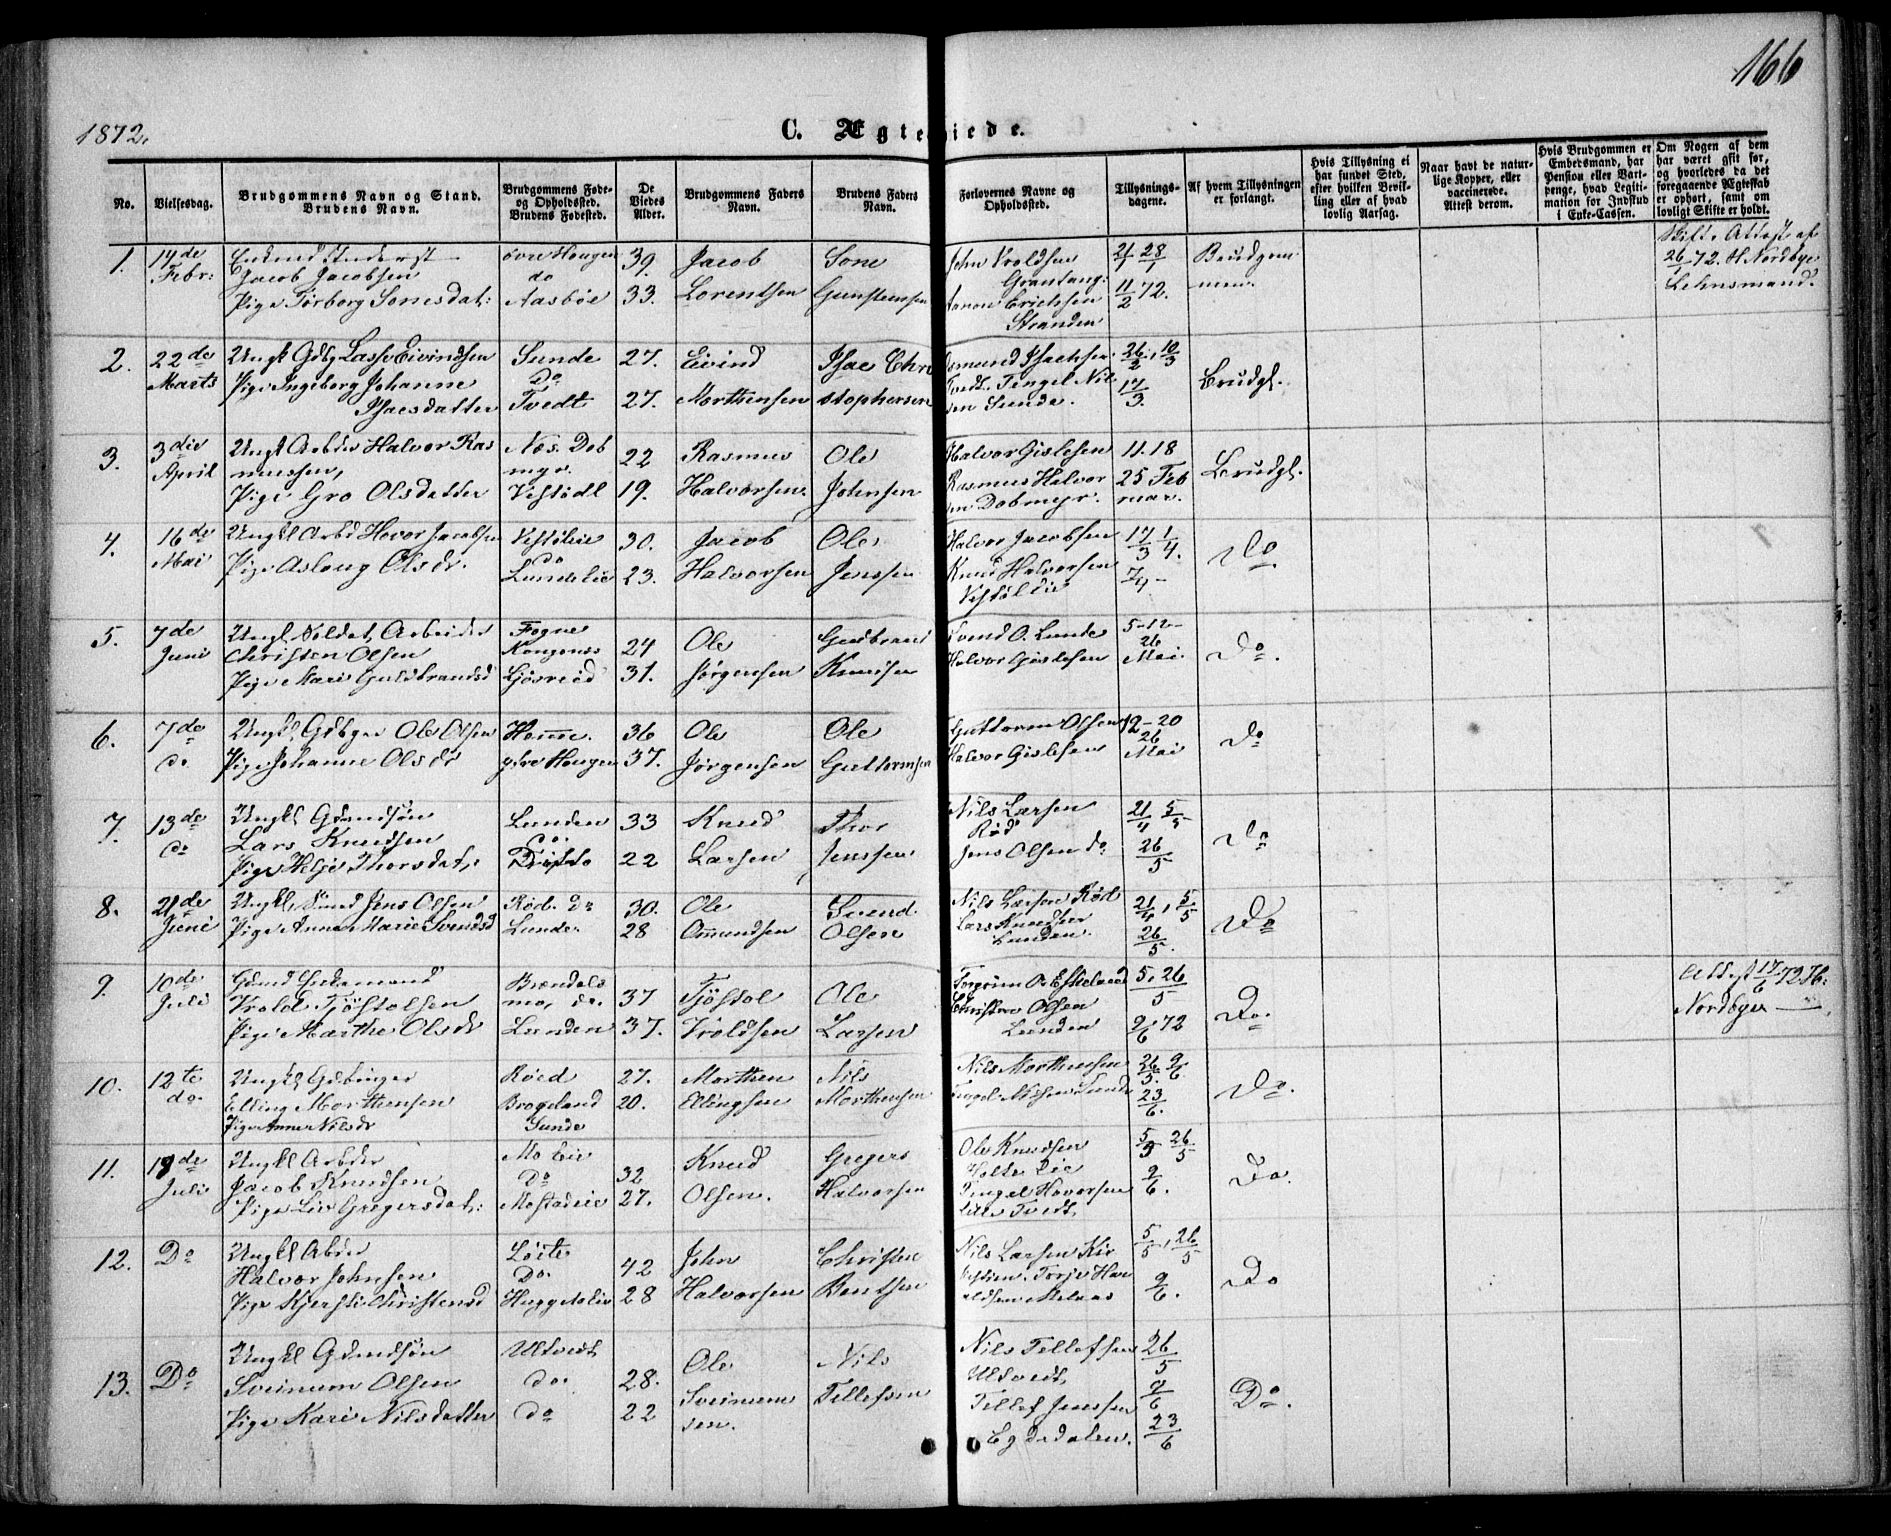 166
1872.
C. Ægteviede.
No.
Vielsesdag.
Brudgommens Navn og Stand.
Brudens Navn.
Brudgommens Føde-
og Opholdssted.
Brudens Fødested.
De
Viedes
Alder.
Brudgommens Faders
Navn.
Brudens Faders
Navn.
Forlovernes Navne og
Opholdssted.
Tillysnings-
dagene.
Af hvem Tillysningen
er forlangt.
Hvis Tillysning ei
har fundet Sted,
efter hvilken Bevil-
ling eller af hvad
lovlig Aarsag.
Naar havt de natur-
lige Kopper, eller
vaccinerede.
Attest derom.
Hvis Brudgommen er
Embedsmand, har
Pension eller Vart-
penge, hvad Legiti-
mation for Indskud
i Enke-Cassen.
Om Nogen af dem
har været gift før,
og hvorledes da det
foregaaende Ægteskab
er ophørt, samt om
lovligt Skifte er holdt.
1.
14de
Febr:
Enkemd Inderst
Jacob Jacobsen
Pige Torborg Sonesdat:
øvre Hougen
do
Aasbøe
39.
33.
Jacob
Lorentsen
Sone
Gunstensen
John Vroldsen
Grantang.
Aanon Erichsen
Stranden
21/1 28/1
11/2 72.
Brudgom
men.
Skift. Attest af
26/1 72. H. Nordbye
Lehnsmand.
2.
22de
Marts
Ungk Gdbg Lasse Eivindsen
Pige Ingeborg Johanne
Isacsdatter
Sunde
Do
Tvedt
27.
27.
Eivind
Morthensen
Isac Chri
stophersen
Osmund Isachsen
Tvedt. Tengel Nil
sen Sunde.
26/2, 10/3
17/3.
Brudgl.
3.
3die
April
Ungk Arbder Halvor Ras
mussen,
Pige Gro Olsdatter
Næs. Dob
myr.
Vestødl
22
19.
Rasmus
Halvorsen.
Ole
Johnsen
Halvor Gislesen
Rasmus Halvor
sen Dobmyr.
11. 18
25 Feb
ruar.
Brudgl.
4.
16de
Mai
Ungkl Arbd Hovor Jacobsen
Pige Aslaug Olsdr.
Vestøleie
do
Lundeleie
30.
23.
Jacob
Halvorsen
Ole
Jenssen
Halvor Jacobsen
Knud Halvorsen
17/3 1/4.
7/4 -
Do
5.
7de
Juni
Ungkl, Soldat, Arbeider
Christen Olsen
Pige Mari Guldbrandsd
Fogne
Kongenes
24
31.
Ole
Jørgensen
Gudbrand
Knudsen
Svend O. Lunde
Halvor Gislesen
5-12-
26
Mai.
Do.
6.
7de
do
Ungkl, Gdbger Ole Olsen
Pige Johanne Olsdr
Homme.
øvre Hougen
36
37.
Ole
Jørgensen
Ole
Guttormsen
Guttorm Olsen
Halvor Gislesen
12-20
26
Mai
Do
7.
13de
do
Ungkl Gdmdsøn
Lars Knudsen
Pige Helje Thorsdat:
Lunden
do
33
22
Knud
Larsen
Thor
Jenssen
Nils Larsen
Rød
Jens Olsen do
21/4 5/5
26/5
Do
8.
21de
Juni
Ungkl, Smed Jens Olsen
Pige Anne Marie Svendsd
Rød. Do
Lunde.
30.
28
Ole
Omundsen
Svend
Olsen
Nils Larsen Rød
Lars Knudsen
Lunden.
21/4, 5/5
26/5.
Do
9.
10de
Juli
Gdmd Enkemand
Vrold Tjøstolsen
Pige Marthe Olsdr
Brændals
mo, do.
Lunden
37
37.
Tjøstol
Vroldsen
Ole
Larsen
Torgrim O. Eskeland
Christen Olsen
Lunden
5. 26
5
9/6. 72
Do.
Attest 17/6 72 H.
Nordbye
10.
12te
do.
Ungkl Gdbruger
Elling Morthensen
Pige Anne Nilsdr
Røed
Brogeland
Sunde
27.
20.
Morthen
Ellingsen
Nils
Morthensen
Nils Morthensen
Tengel Nilsen Sunde
26/5. 9/6
23/6.
Do.
11.
18de
Juli
Ungkl Arbder
Jacob Knudsen
Pige Liv Gregersdat:
Mo Eie
Do
Mostadeie
32
27.
Knud
Olsen.
Gregers
Halvorsen
Ole Knudsen
Holte Eie
Tengel Hovorsen
Lille Tvedt,
5/5 26/5
9/6.
Do.
12.
Do
Ungkl Abder
Halvor Johnsen
Pige Kjersti Christensd
Løite
Do.
42
28
John
Halvorsen
Christen
Bentsen
Nils Larsen Kir
Torje Har
aldsen
5/5, 26/5
9/6.
Do
13.
Do
Ungkl Gdmdsøn
Sveinum Olsen
Pige Kari Nilsdatter
Ultvedt
do.
do
28.
22
Ole
Sveinum
sen.
Nils
Tellefsen
Nils Tellefsen
Ultvedt,
Tellef Jenssen
Egdedalen.
26/5
9/6
23/6
Do.